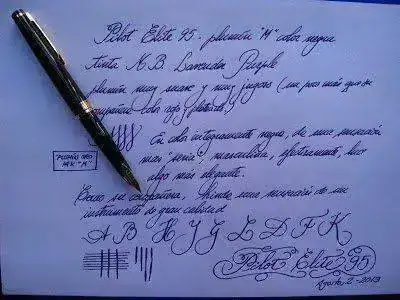 Pilot Elite 95. plumín "M" color negra
tinta N.B. Lavender Purple
plumín muy suave y muy jugoso (un poco más que su
compañera color rojo y plateada)
En color integramente negro, da una sensación
mas seria, masculina, efectivamente, luce
algo más elegante.
PLUMÍN ORO
14K "M"
Como su compañera, brinda una sensación de un
instrumento de gran calidad
A B H Y G L D F K
Pilot Elite 95
Agosto 2-2013